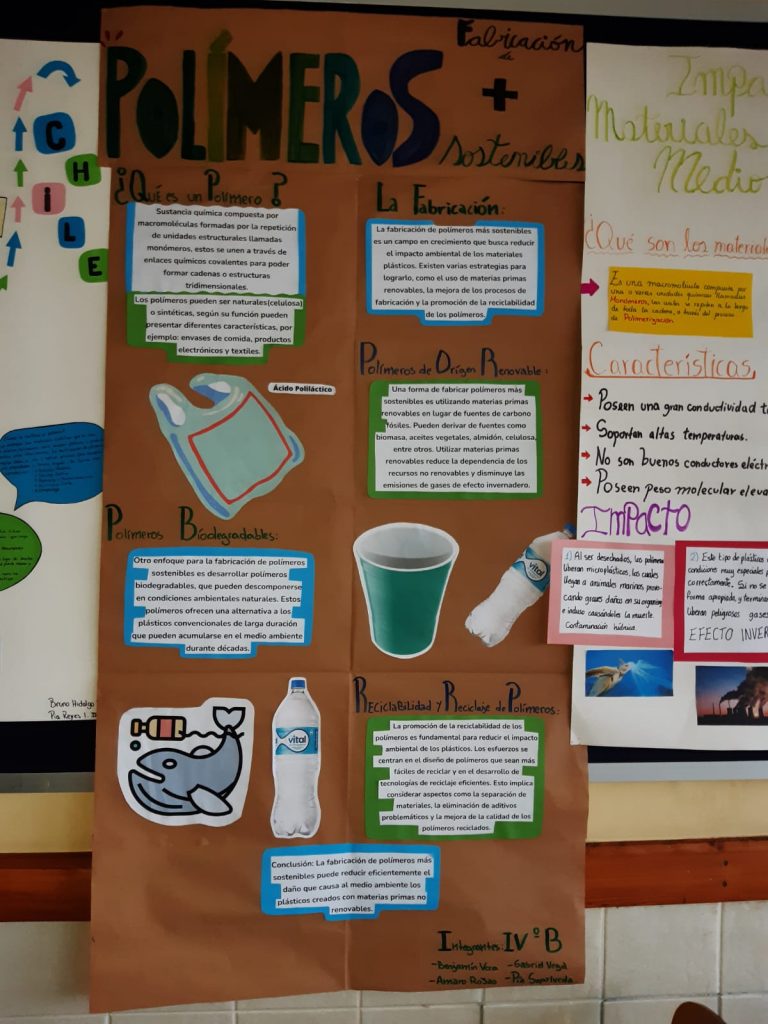 CHILE
POLÍMEROS
Fabricación
de
+
sostenibles
¿Qué es un Polímero?
Sustancia química compuesta por
macromoléculas formadas por la repetición
de unidades estructurales llamadas
monómeros, estos se unen a través de
enlaces químicos covalentes para poder
formar cadenas o estructuras
tridimensionales.
Los polímeros pueden ser naturales(celulosa)
o sintéticas, según su función pueden
presentar diferentes características, por
ejemplo: envases de comida, productos
electrónicos y textiles.
Ácido Poliláctico
Polímeros Biodegradables:
Otro enfoque para la fabricación de polímeros
sostenibles es desarrollar polímeros
biodegradables, que pueden descomponerse
en condiciones ambientales naturales. Estos
polímeros ofrecen una alternativa a los
plásticos convencionales de larga duración
que pueden acumularse en el medio ambiente
durante décadas.
La Fabricación:
La fabricación de polímeros más sostenibles
es un campo en crecimiento que busca reducir
el impacto ambiental de los materiales
plásticos. Existen varias estrategias para
lograrlo, como el uso de materias primas
renovables, la mejora de los procesos de
fabricación y la promoción de la reciclabilidad
de los polímeros.
Polímeros de Orígen Renovable:
Una forma de fabricar polímeros más
sostenibles es utilizando materias primas
renovables en lugar de fuentes de carbono
fósiles. Pueden derivar de fuentes como
biomasa, aceites vegetales, almidón, celulosa,
entre otros. Utilizar materias primas
renovables reduce la dependencia de los
recursos no renovables y disminuye las
emisiones de gases de efecto invernadero.
vital
vital
Reciclabilidad y Reciclaje de Polímeros:
La promoción de la reciclabilidad de los
polímeros es fundamental para reducir el impacto
ambiental de los plásticos. Los esfuerzos se
centran en el diseño de polímeros que sean más
fáciles de reciclar y en el desarrollo de
tecnologías de reciclaje eficientes. Esto implica
considerar aspectos como la separación de
materiales, la eliminación de aditivos
problemáticos y la mejora de la calidad de los
polímeros reciclados.
Conclusión: La fabricación de polímeros más
sostenibles puede reducir eficientemente el
daño que causa al medio ambiente los
plásticos creados con materias primas no
renovables.
Integrantes: IVºB
-Benjamín Vera -Gabriel Vegal
-Amaro Rosas -Pía Sepúlveda
Bruno Hidalgo
Pía Reyes
Impa
Materiales
Medio
¿Qué son los materiale
Es una macromolécula compuesta por
una o varias unidades químicas llamadas
Monómeros, los cuales se repiten a lo largo
de toda la cadena, a través del proceso
de Polimerización.
Características
Poseen una gran conductividad t
Soportan altas temperaturas.
No son buenos conductores eléctr
Poseen peso molecular eleva
IMPACTO
1) Al ser desechados, los polímeros
liberan microplásticos, los cuales
llegan a animales marinos, provo-
cando graves daños en su organismo
e incluso causándoles la muerte.
Contaminación hídrica.
2) Este tipo de plásticos
condiciones muy especiales p
correctamente. Si no se
forma apropiada, y terminan
liberan peligrosos gases
EFECTO INVER